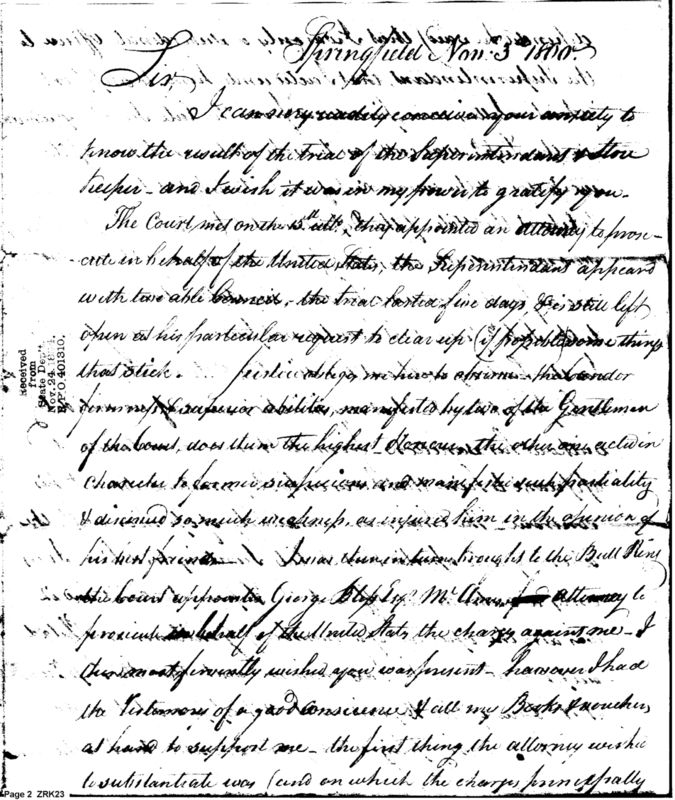 Springfield Nov. 3 1800
Sir
I can very readily conceive your anxiety to
know the result of the trial of the Superintendant & Store
keeper – and I wish it was in my power to gratify you.
The Court met on the 15th ulto, they appointed an attorney to prose-
cute in behalf of the United States, the Superintendant appeard
with two able Council, the trial lasted five days, & is still left
open at his particular request to clear up (if possible) some things
that stick. Justice obliges me here to observe that candor
firmness & superior abilities, manifested by two of the Gentlemen
of the court, does them the highest honour the other one acted in
Character to former suspicions and manifested such partiality
& discovered so much weakness, as injured him in the opinion of
his best friends – I was then in turn brought to the Bull Ring
the court appointed George Bliss Esqr. attorney to
prosecute in behalf of the United States the charges against me – I
then most fervently wished you was present – however I had
the Testimony of a good conscience & all my Books & vouchers
at hand to support me – the first thing the attorney wished
to substantiate was (and on which the charges principally
Received
from
State Dept.
Nov. 24,
E.P.O. 401310.
Page 2 ZRK23